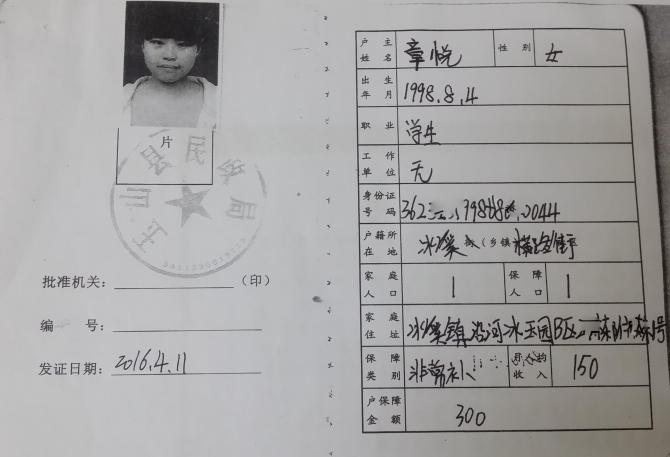 片
玉山县民政局
批准机关：（印）
编 号：
发证日期：2016.4.11
户主姓名 章悦 性别 女
出生年月 1998.8.4
职业 学生
工作单位 无
身份证号码
户籍所在地 冰溪 （乡镇
家庭人口 1 保障人口 1
家庭住址 冰溪镇沿河冰玉园B区
保障类别 非常补 收入 150
户保障金额 300